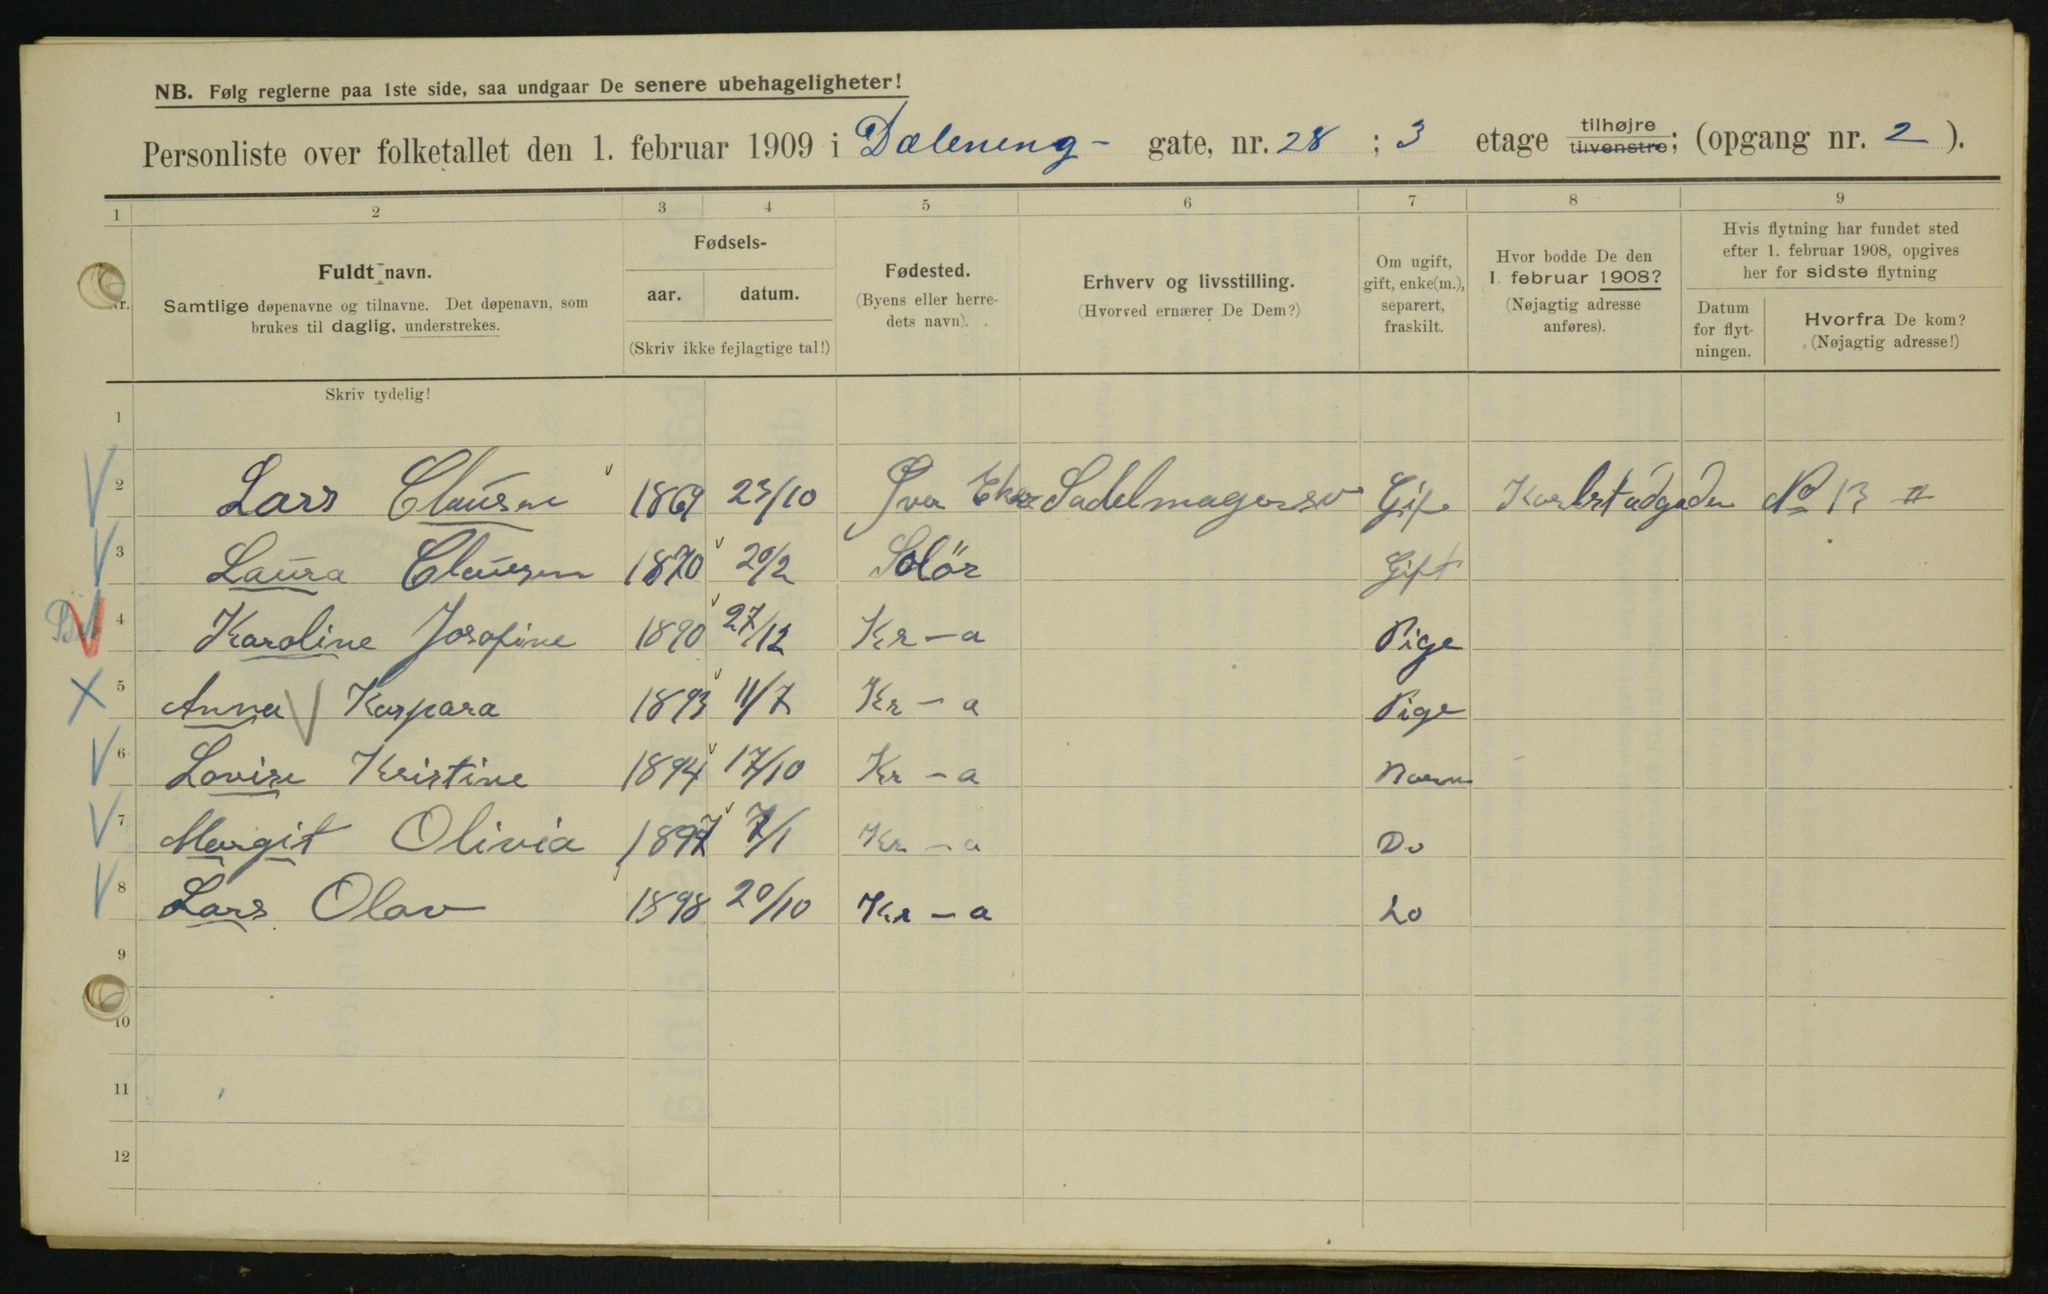 NB. Følg reglerne paa 1ste side, saa undgaar De senere ubehageligheter!
Personliste over folketallet den 1. februar 1909 i Dæleneng- gate, nr. 28 ; 3 etage tilhøjre tilvenstre; (opgang nr. 2 ).
1 2 3 4 5 6 7 8 9
Nr.
Fuldt navn.
Samtlige døpenavne og tilnavne. Det døpenavn, som
brukes til daglig, understrekes.
Fødsels-
aar. datum.
(Skriv ikke fejlagtige tal!)
Fødested.
(Byens eller herre-
dets navn).
Erhverv og livsstilling.
(Hvorved ernærer De Dem?)
Om ugift,
gift, enke(m.),
separert,
fraskilt.
Hvor bodde De den
1. februar 1908?
(Nøjagtig adresse
anføres).
Hvis flytning har fundet sted
efter 1. februar 1908, opgives
her for sidste flytning
Datum
for flyt-
ningen.
Hvorfra De kom?
(Nøjagtig adresse!)
Skriv tydelig!
1
2 Lars Clausen 1869 23/10 Øver Eker Sadelmagersv Gift Karlstadgaden No 13 II
3 Laura Clausen 1870 20/2 Solör Gift
4 Karoline Josefine 1890 27/12 Kr-a Pige
5 Anna Kaspara 1893 11/7 Kr-a Pige
6 Lovise Kristine 1894 17/10 Kr-a Barn
7 Margit Olivia 1897 7/1 Kr-a Do
8 Lars Olav 1898 20/10 Kr-a Do
9
10
11
12